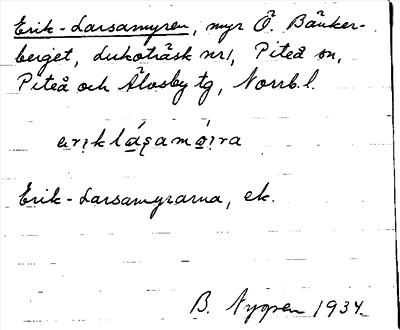 Erik-Larsamyren, myr Ö. Bänker-
berget, Lukoträsk nr 1, Piteå sn,
Piteå och Älvsby tg, Norrb. l.
erikláșamóira
Erik-Larsamyrarna, ek.
B. Nygren 1934.